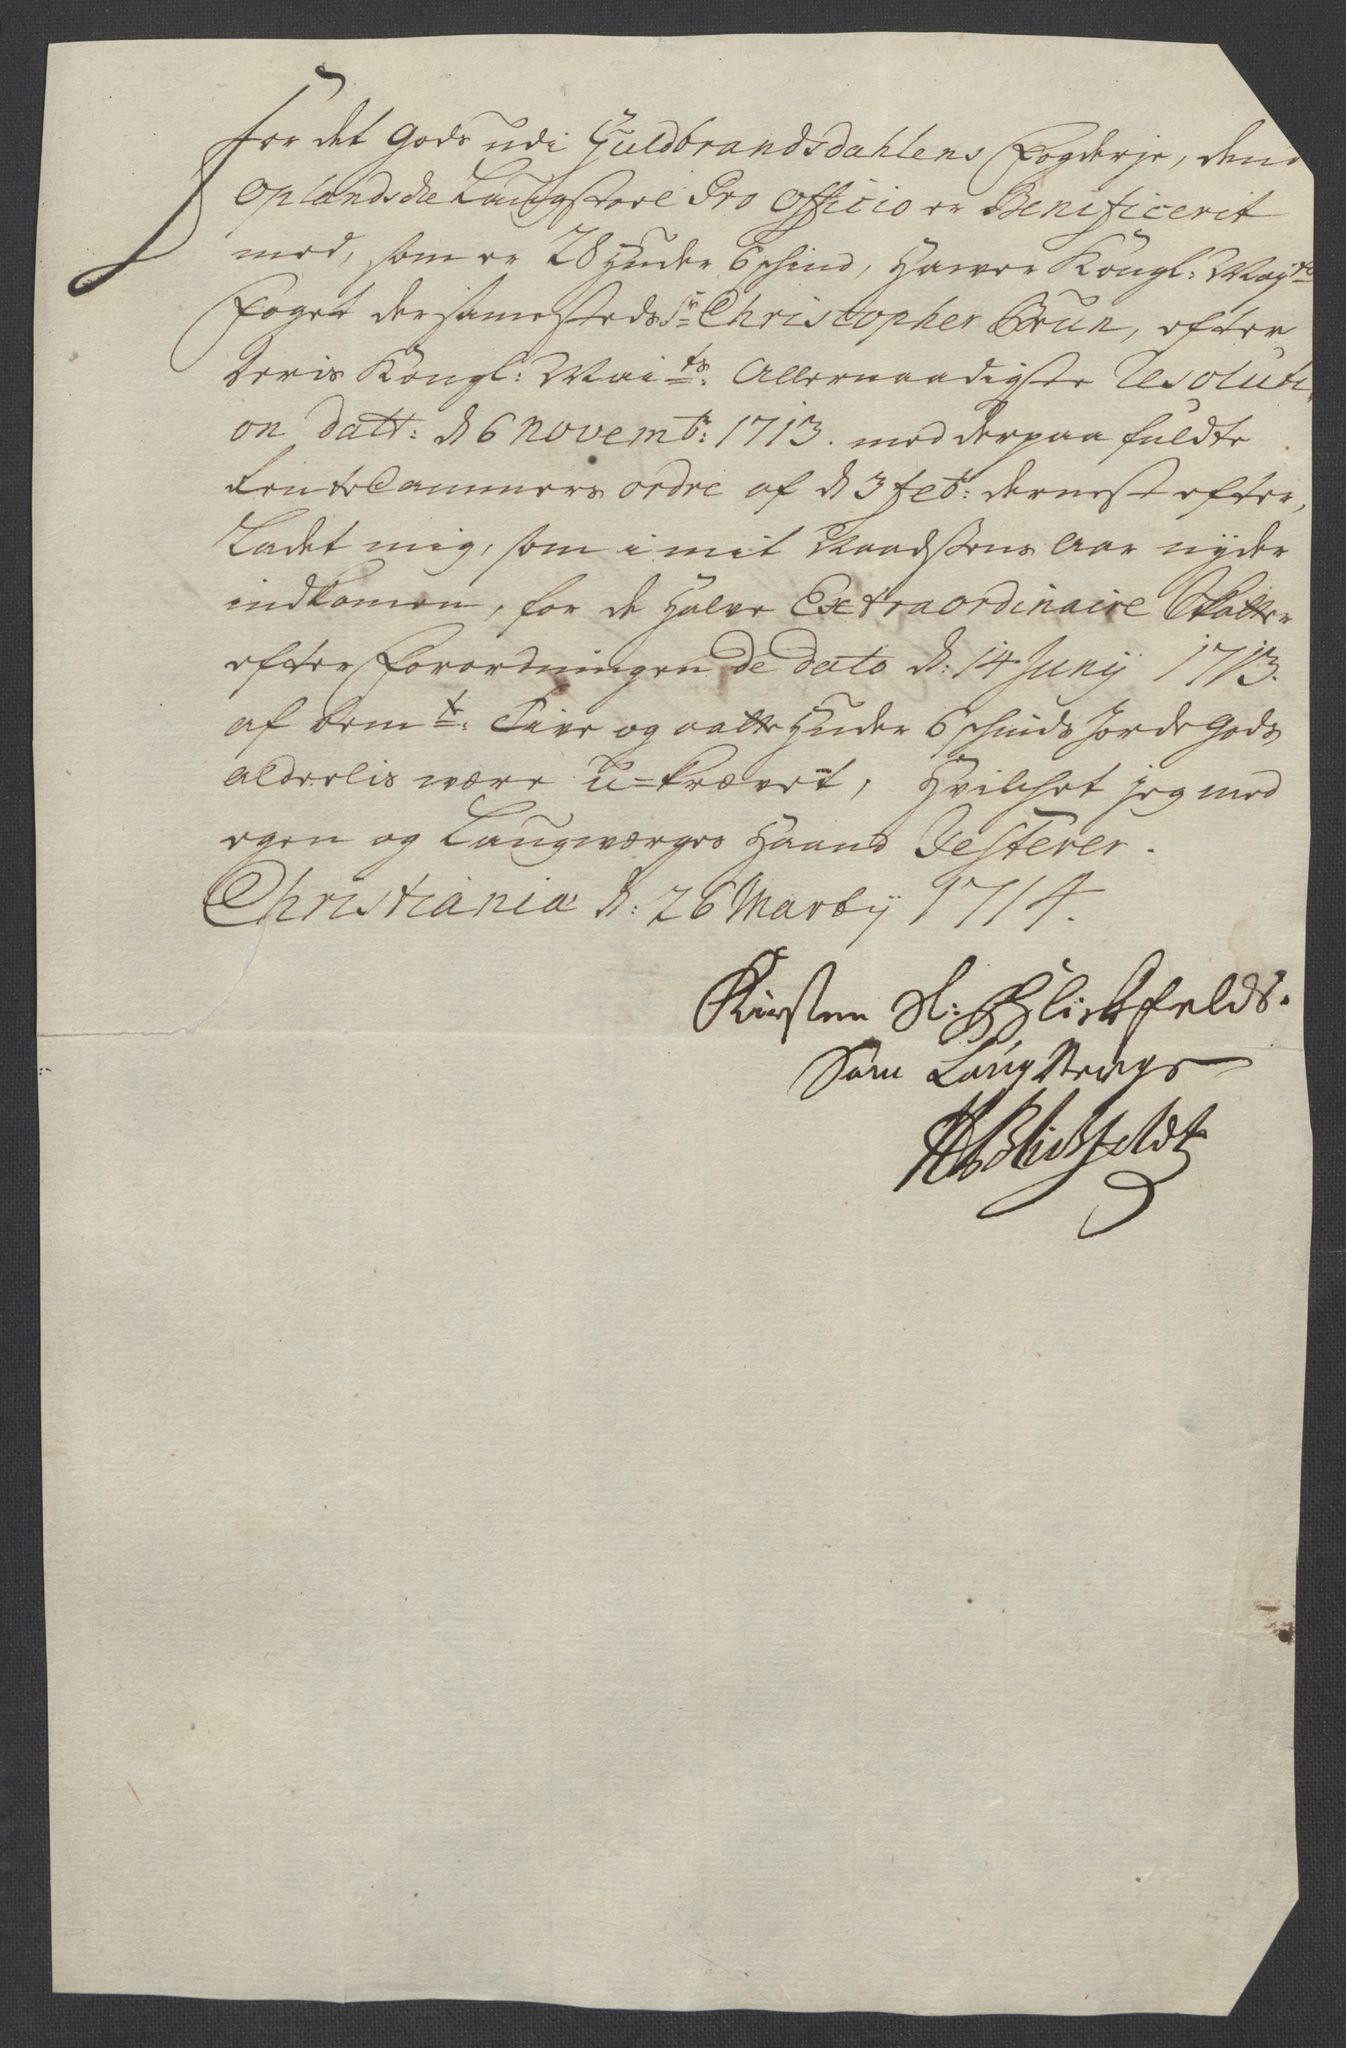 For det Gods udi Guldbrandsdahlens Fogderje, dend
Oplandsche Laugstoel Pro Officio er Benificerit
med, som er 28 Huder 6 schind, Hawer Kongl: May:ts
Foget dersamesteds Sr: Christopher Brun, efter
deris Kongl: Mai:ts: Allernaadigste Resoluti
on datt: d 6 Novembr: 1713. med derpaa fuldte
RenteCammers ordre af d 3 feb: dernest efter,
Ladet mig, som i mit Naadsens Aar nyder
indkomen, for de halve Extraordinaire Skatter
efter Forordningen de dato d: 14 Junij 1713.
af bemte: Tive og aatte Huder 6 schinds Jorde Gods
alderlis være u=krævet, Hvilchet jeg med
egen og Laugværges Haand Testerer.
Christiania d: 26 Marty 1714.
Kirsten Sl: Blickfelds.
Som Laug Verge
Blichfeldt